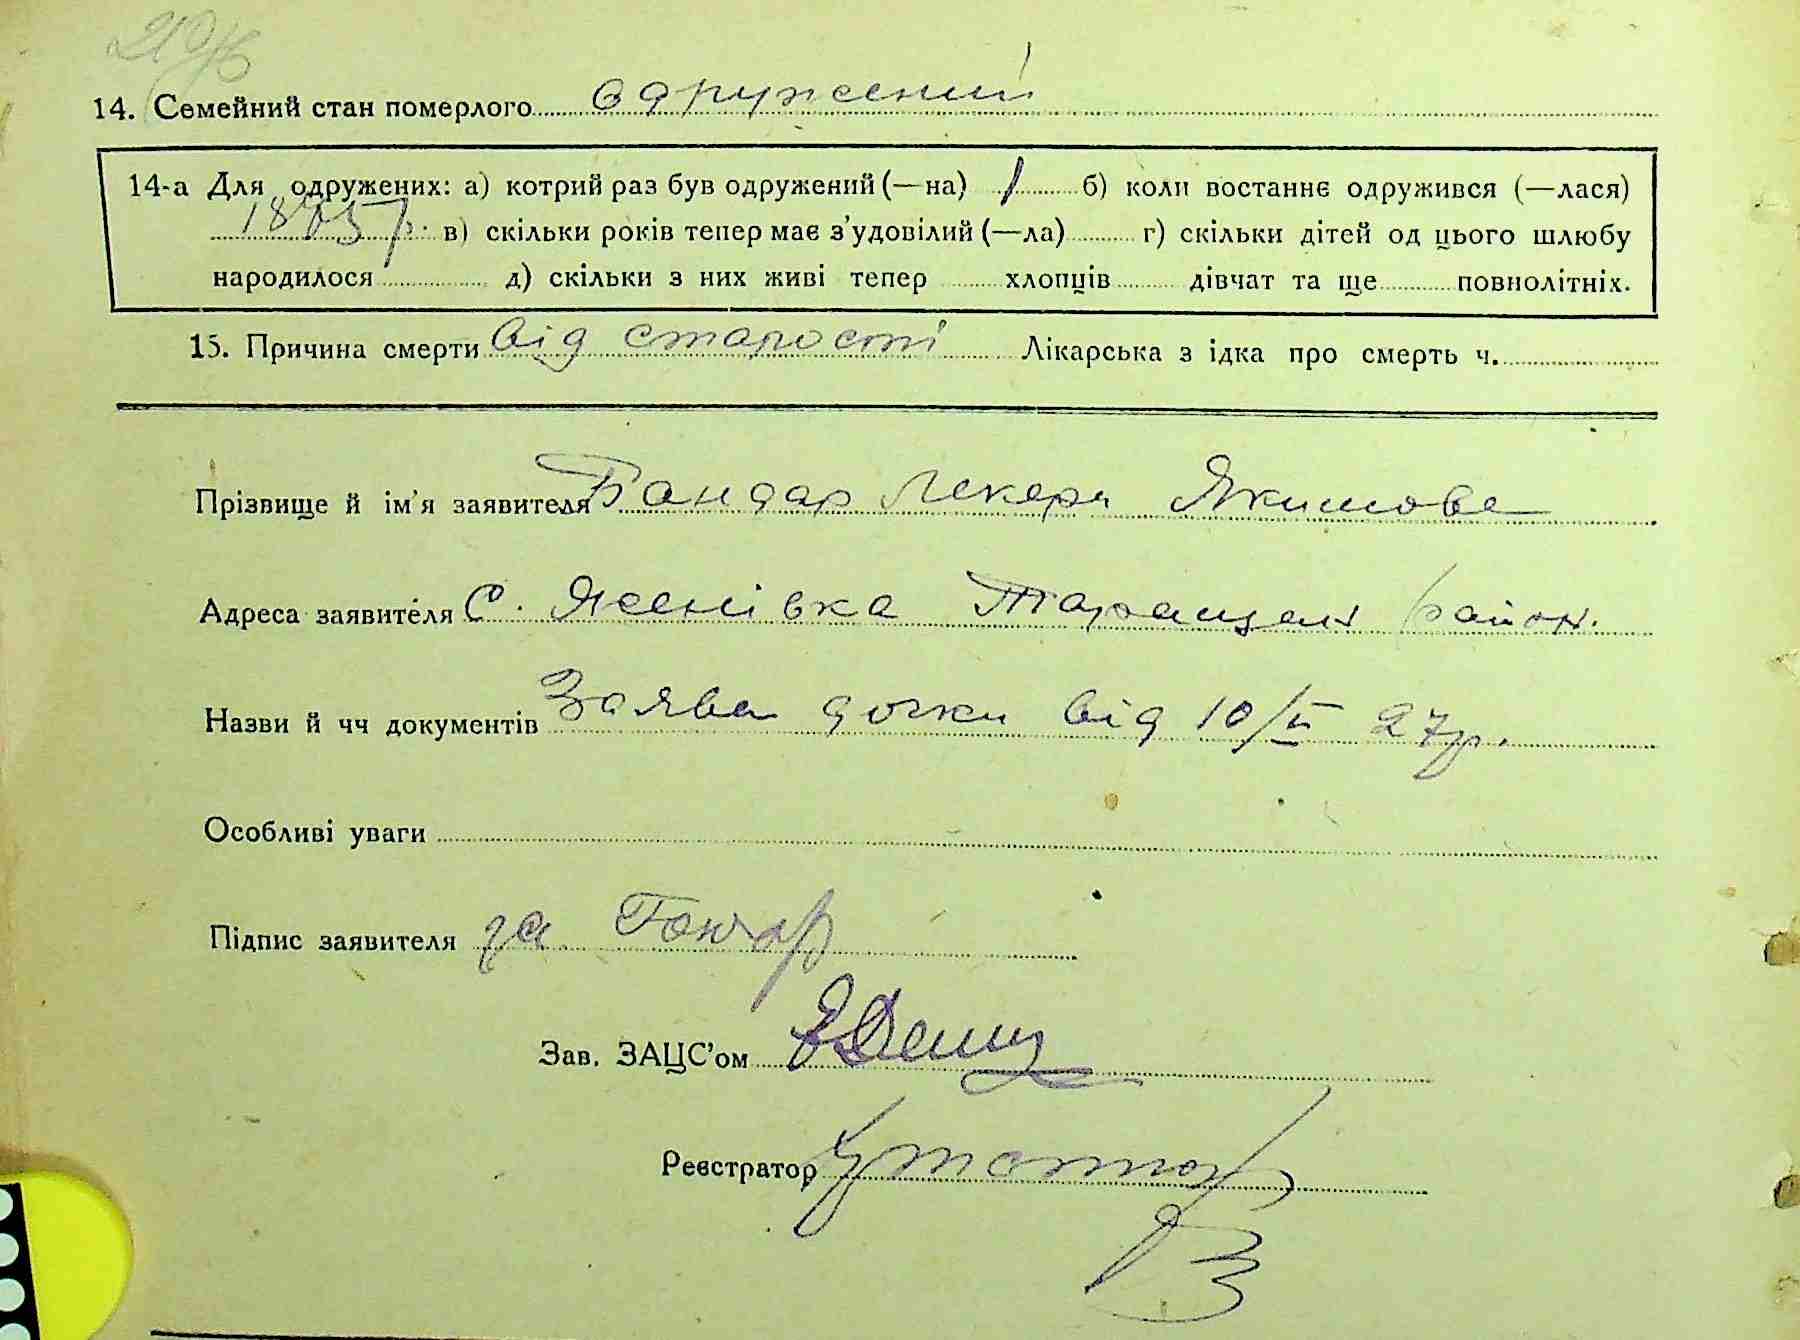 14. Семейний стан померлого одружений
14-а Для одружених: а) котрий раз був одружений (—на) 1 б) коли востаннє одружився (—лася)
1875 р. в) скільки років тепер має з’удовілий (—ла) г) скільки дітей од цього шлюбу
народилося д) скільки з них живі тепер хлопців дівчат та ще повнолітніх.
15. Причина смерти від старости Лікарська з ідка про смерть ч.
Прізвище й ім’я заявителя Бондар Якимова
Адреса заявителя С. Ясенівка Таращан район.
Назви й чч документів Заява дочки від 10/II 27р.
Особливі уваги
Підпис заявителя за Гончар
Зав. ЗАЦС’ом
Реєстратор